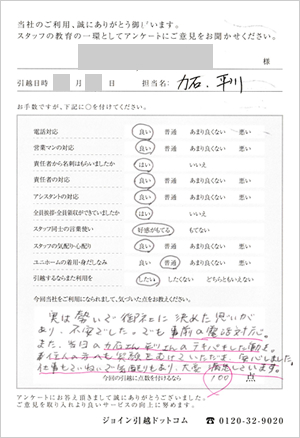 当社のご利用、誠にありがとう御座います。
スタッフの教育の一環としてアンケートにご意見をお聞かせください。
様
引越日時 月 日 担当名: 力石、平川
お手数ですが、下記に○を付けてください。
電話対応 良い 普通 あまり良くない 悪い
営業マンの対応 良い 普通 あまり良くない 悪い
責任者から名刺はもらいましたか はい いいえ
責任者の対応 良い 普通 あまり良くない 悪い
アシスタントの対応 良い 普通 あまり良くない 悪い
全員挨拶・全員領収ができていましたか はい いいえ
スタッフ同士の言葉使い 好感がもてる もてない
スタッフの気配り・心配り 良い 普通 あまり良くない 悪い
ユニホームの着用・身だしなみ 良い 普通 あまり良くない 悪い
引越するならまた利用を したい したくない どちらともいえない
今回当社をご利用になられまして、気づいた点をお教えください。
実は勢いで御社に決めた思いが
あり、不安でした。でも事前の電話対応。
また、当日の力石さん、平川さんのテキパキした動き。
も笑顔をむけていただき、安心しました。
仕事もていねいで気配りもあり、大変満足しています。
今回の引越に点数を付けるなら 100 点
アンケートにお答え頂きまして誠にありがとうございました。
ご意見を取り入れより良いサービスの向上に努めます。
ジョイン引越ドットコム 0120-32-9020